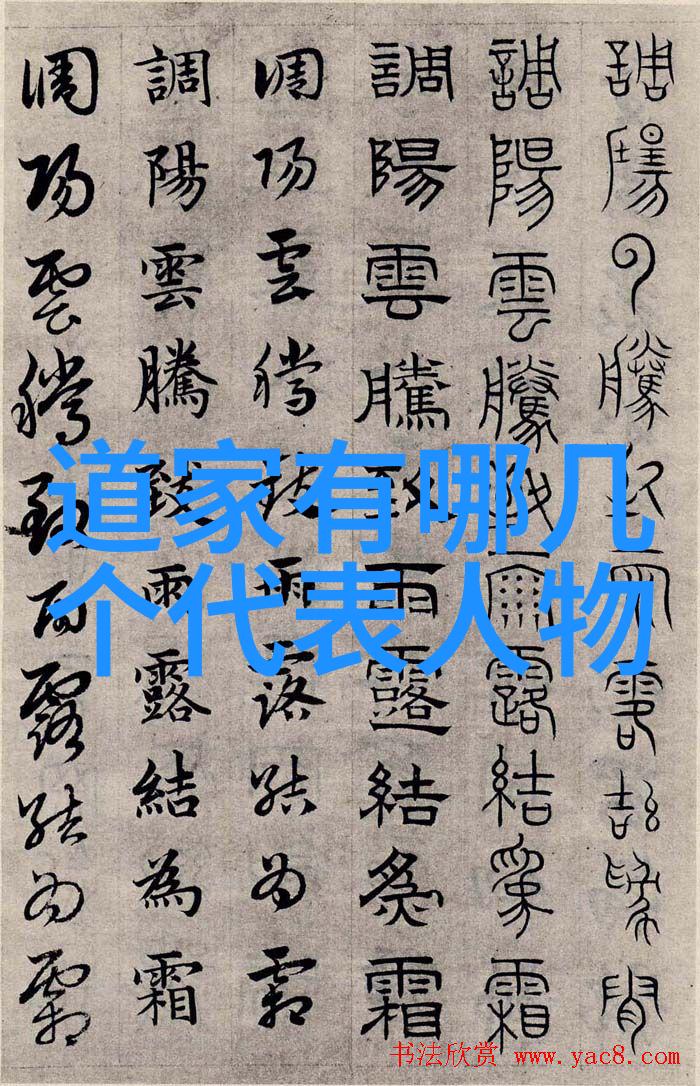 調陽雲騰致雨露結為霜
調陽雲騰致雨露結為霜
調陽雲騰致雨露結為霜
調陽雲騰致雨露結為霜
調陽雲騰致雨露結為霜
調陽雲騰致雨露結為霜
道家有哪几
个代表人物
书法欣赏 www.yac8.com